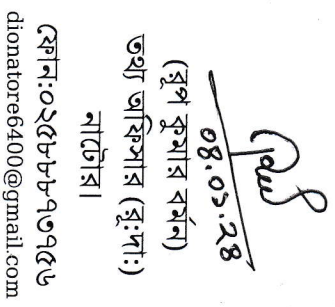 ০৪.০১.২৪
(রূপ কুমার বর্মন)
তথ্য অফিসার (রু:দা:)
নাটোর।
ফোন:০২৫৮৮৮৭৩৭৫৬
dionatore6400@gmail.com